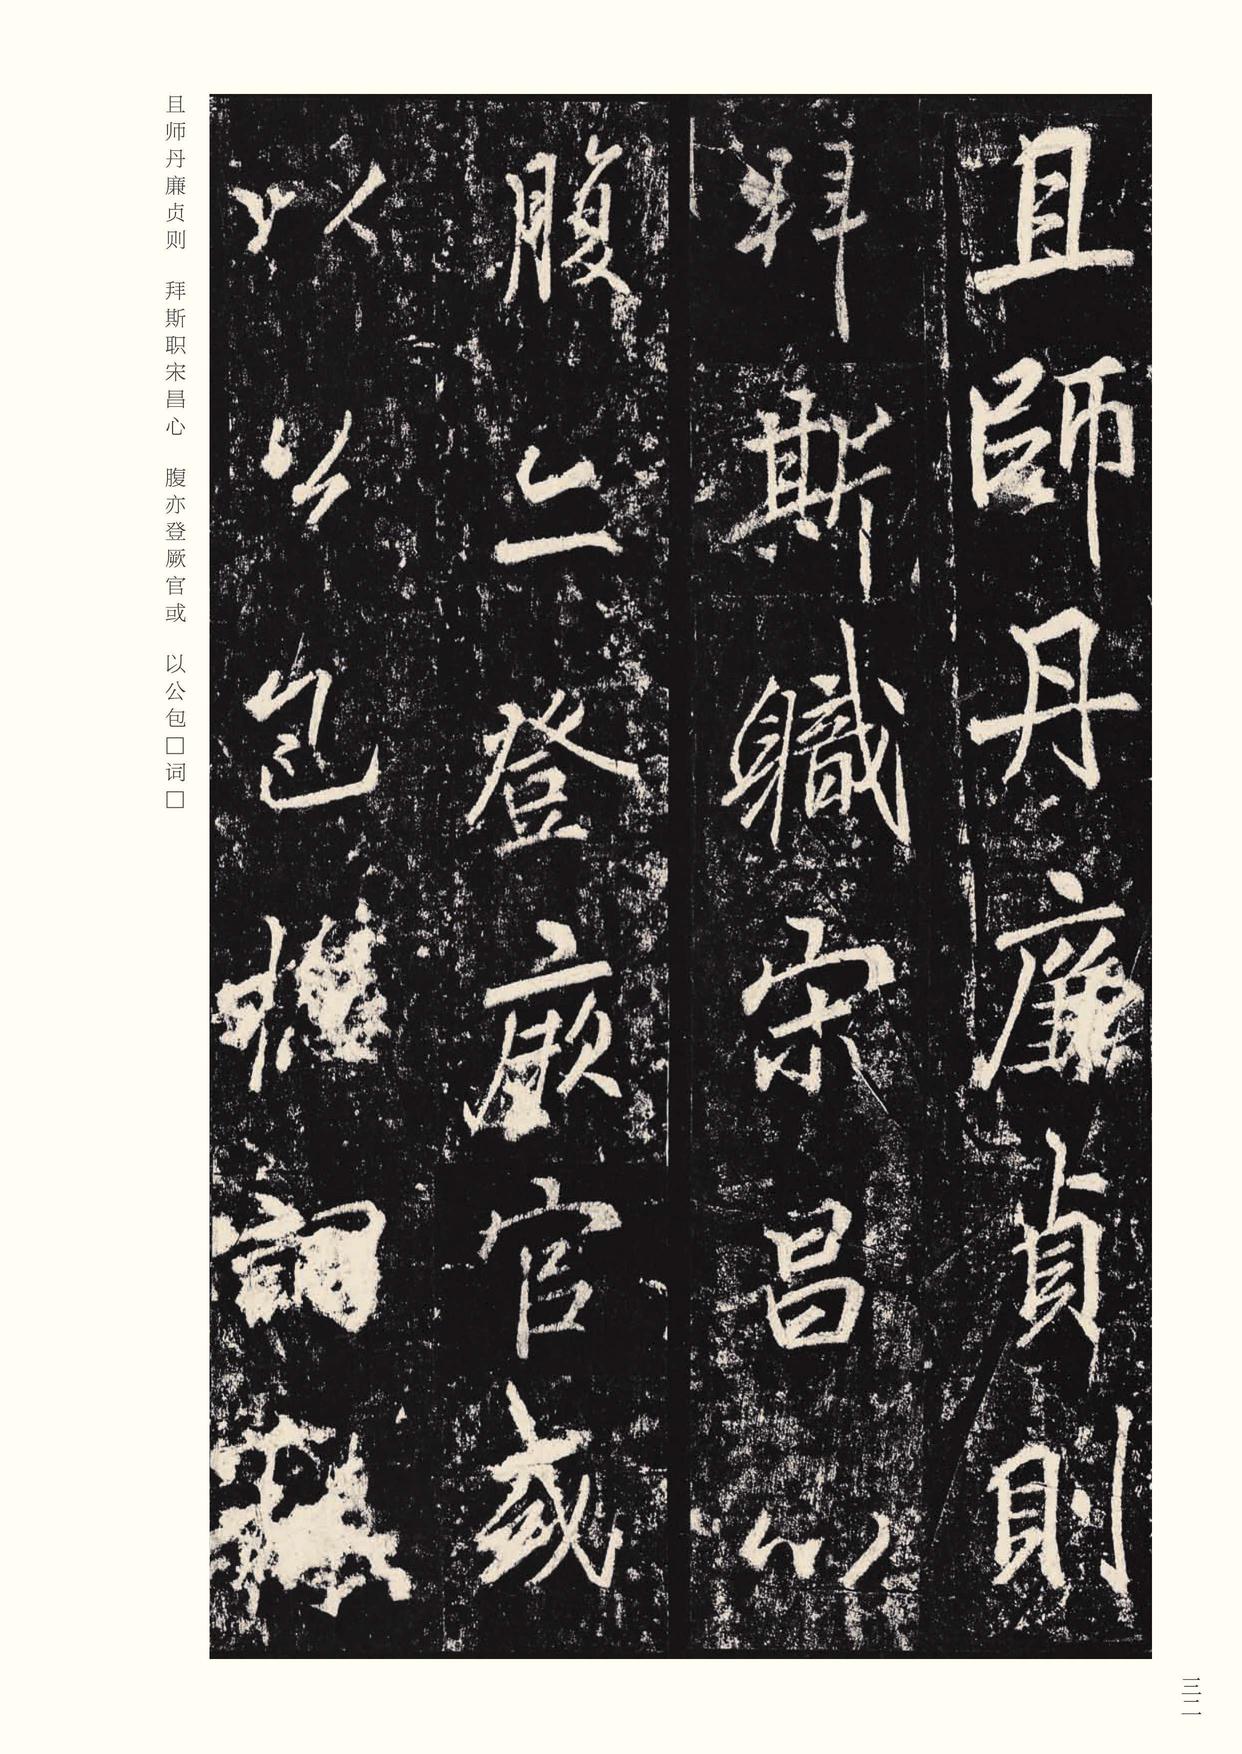 且師丹廉貞則
拜斯職宋昌心
腹亦登厥官或
以公包
詞
且师丹廉贞则　拜斯职宋昌心　腹亦登厥官或　以公包□词□
三二